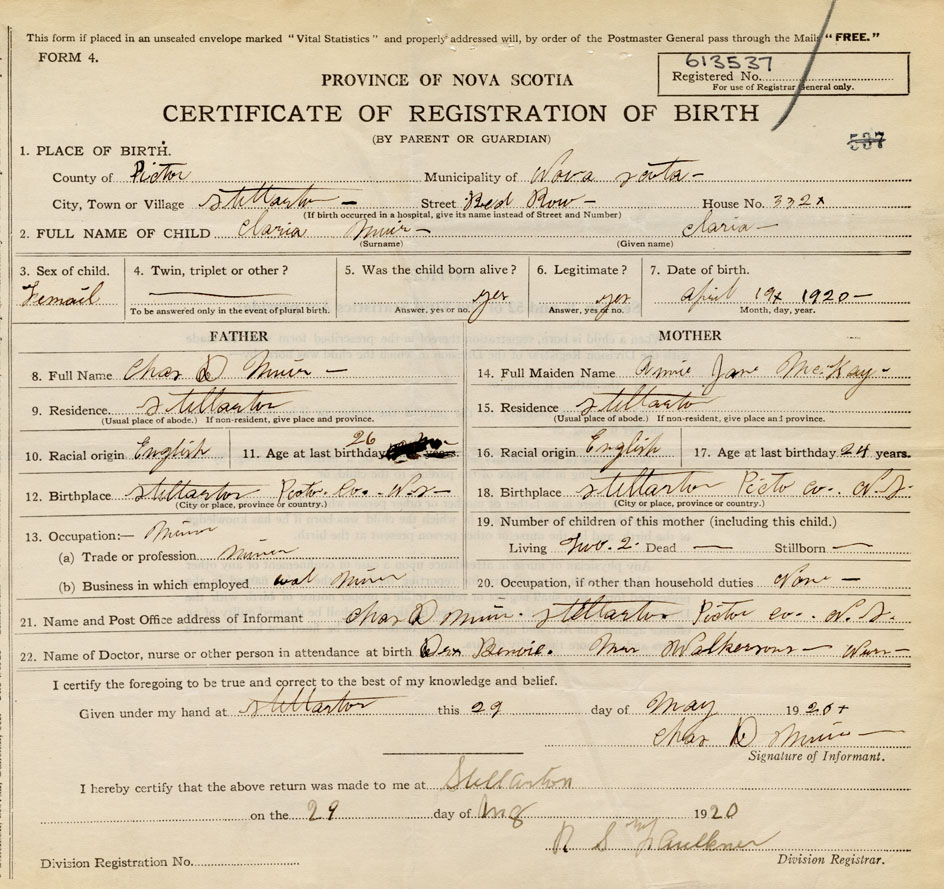 This form if placed in an unsealed envelope marked "Vital Statistics" and properly addressed will, by order of the Postmaster General pass through the Mails "FREE."
FORM 4.
613537
Registered No.
For use of Registrar General only.
PROVINCE OF NOVA SCOTIA
CERTIFICATE OF REGISTRATION OF BIRTH
(BY PARENT OR GUARDIAN)
537
1. PLACE OF BIRTH.
County of Pictou Municipality of Nova Scota
City, Town or Village Stellarton Street Red Row House No. 332
(If birth occurred in a hospital, give its name instead of Street and Number)
2. FULL NAME OF CHILD Claria Muir Claria
(Surname) (Given name)
3. Sex of child. 4. Twin, triplet or other? 5. Was the child born alive? 6. Legitimate? 7. Date of birth.
Femail yes yes April 19 1920
To be answered only in the event of plural birth. Answer, yes or no. Answer, yes or no. Month, day, year.
FATHER MOTHER
8. Full Name Chas D Muir 14. Full Maiden Name Annie Jane McKay
9. Residence. Stellarton 15. Residence Stellarton
(Usual place of abode.) If non-resident, give place and province. (Usual place of abode.) If non-resident, give place and province.
10. Racial origin English 11. Age at last birthday 26 years. 16. Racial origin English 17. Age at last birthday 24 years.
12. Birthplace Stellarton Pictou Co. N.S. 18. Birthplace Stellarton Picto co. N.S.
(City or place, province or country.) (City or place, province or country.)
13. Occupation:— Miner 19. Number of children of this mother (including this child.)
(a) Trade or profession Miner Living Two. 2. Dead — Stillborn —
(b) Business in which employed coal Miner 20. Occupation, if other than household duties None
21. Name and Post Office address of Informant Chas D Muir. Stellarton. Pictou co. N.S.
22. Name of Doctor, nurse or other person in attendance at birth
I certify the foregoing to be true and correct to the best of my knowledge and belief.
Given under my hand at Stellarton this 29 day of May 1920
Chas D Muir
Signature of Informant.
I hereby certify that the above return was made to me at Stellarton
on the 29 day of 1920
Faulkner
Division Registration No. Division Registrar.